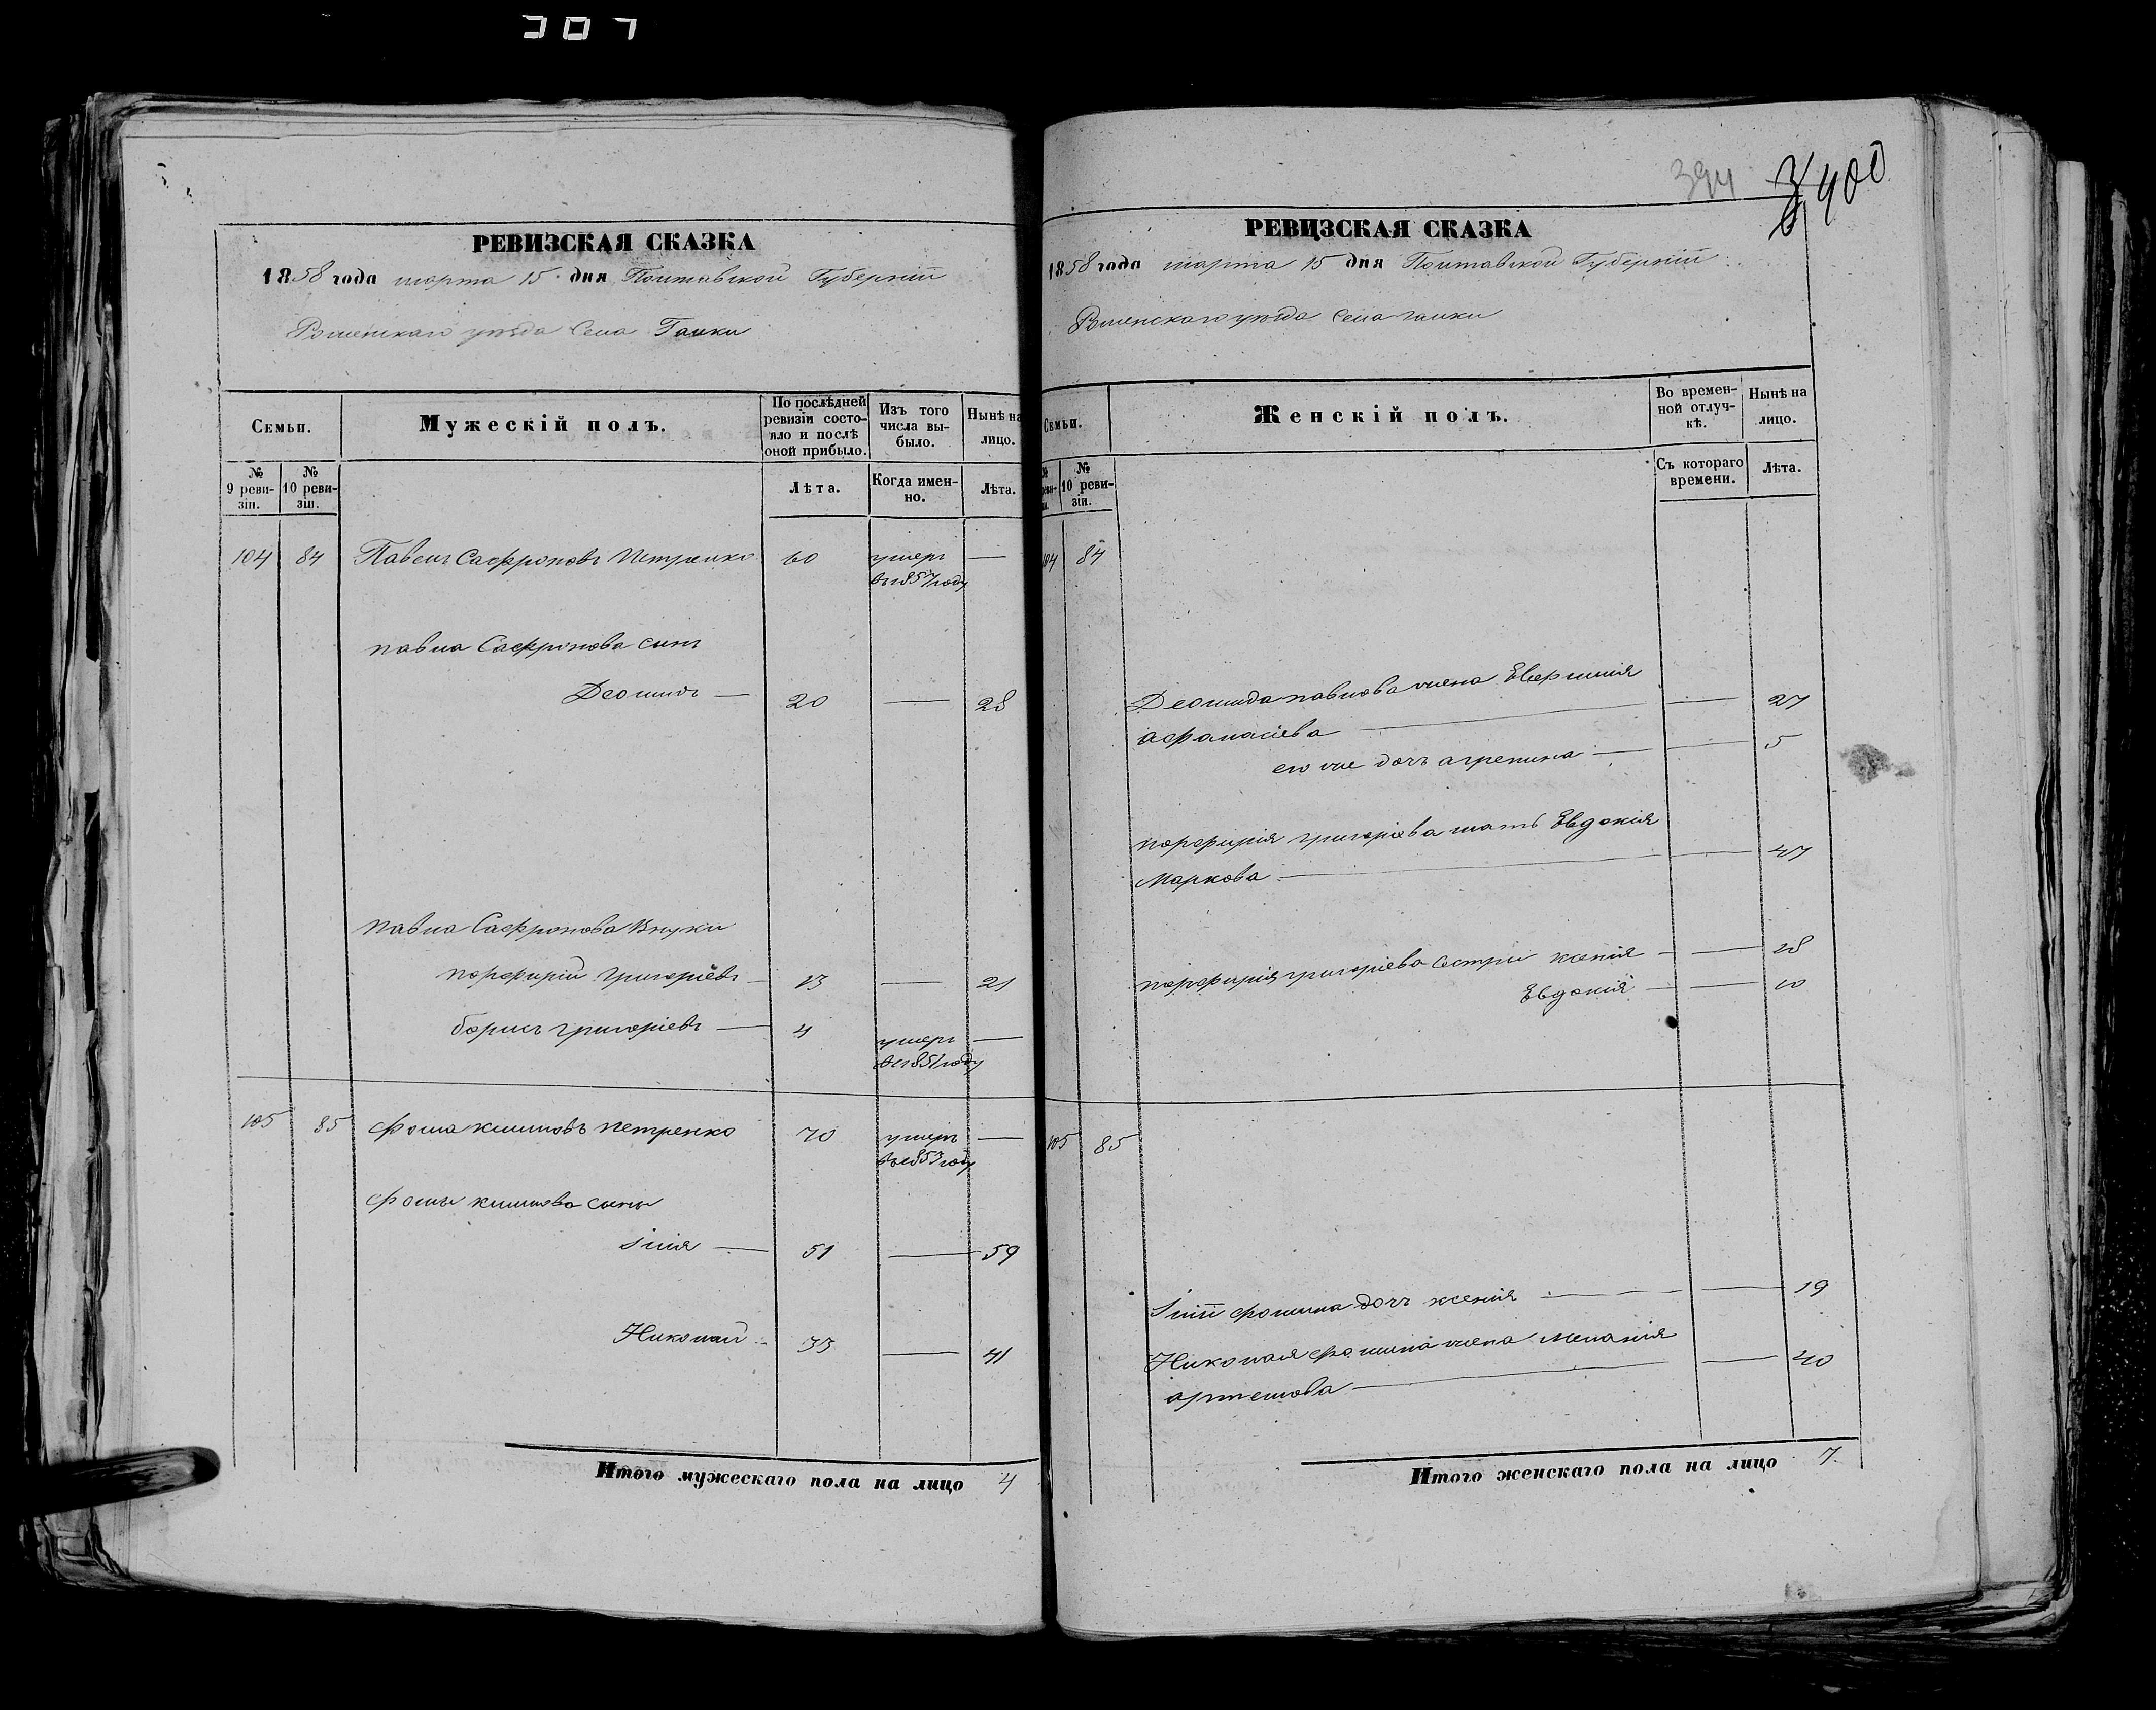 307
РЕВИЗСКАЯ СКАЗКА
1858 года марта 15 дня Полтавской Губерніи
Роменскаго уезда Села Галки
Семьи.
Мужескій полъ.
По послѣдней ревизіи состояло и послѣ оной прибыло.
Изъ того числа выбыло.
Нынѣ на лицо.
№ 9 ревизіи.
№ 10 ревизіи.
Лѣта.
Когда именно.
Лѣта.
104 84 Павелъ Сафроновъ Петренко 60 умеръ —
въ 1857 году
павла Сафронова сынъ
Леонидъ — 20 — 28
павла Сафронова Внуки
порфирій григоріевъ — 13 — 21
борисъ григоріевъ — 4 умеръ —
въ 1851 году
105 85 фома климовъ петренко 70 умеръ —
въ 1853 году
фомы климова сыны
Iлія — 51 — 59
Николай 33 — 41
Итого мужескаго пола на лицо 4
394 400
РЕВИЗСКАЯ СКАЗКА
1858 года марта 15 дня Полтавской Губерніи
Роменскаго уезда села галки
Семьи.
Женскій полъ.
Во временной отлучкѣ.
Нынѣ на лицо.
№ 10 ревизіи.
Съ котораго времени.
Лѣта.
104 84
Леонида павлова жена Евфимія
афанасіева — — 27
его же дочъ агрепина — — 5
порфирія григоріева мать Евдокія
Маркова — — 47
порфирія григоріева сестры ксенія — — 18
Евдокія — — 10
105 85
Iліи фомина дочъ ксенія — — 19
Николая фомина жена меланія
артемова — — 40
Итого женскаго пола на лицо 7